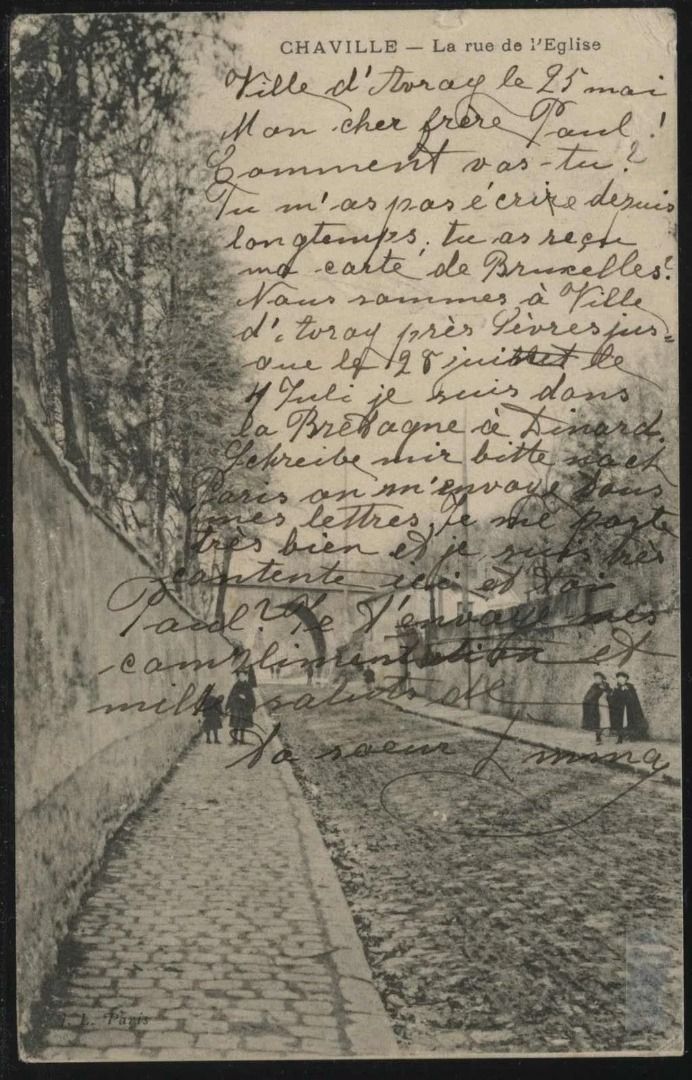 CHAVILLE — La rue de l'Eglise
Ville d'Avray le 25 mai
Mon cher frère Paul!
Comment vas-tu?
Tu m'as pas écrire depuis
longtemps, tu as reçu
ma carte de Bruxelles?
Nous sommes à Ville
d'Avray près Sèvres jus=
que le 28 juillet le
4 Juli je suis dans
la Bretagne à Dinard.
Schreibe mir bitte nach
Paris on m'envoye tous
mes lettres. Je me porte
très bien et je suis très
contente ici et toi
Paul? Je t'envoye mes
complimentation et
mille saluts de
Ta soeur Emma
L. Paris